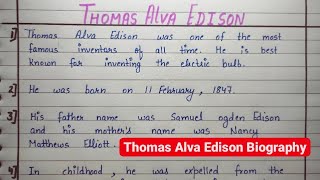 THOMAS ALVA EDISON
1] Thomas Alva Edison was one of the most
famous inventors of all time. He is best
known for inventing the electric bulb.
2] He was born on 11 February, 1847.
3] His father name was Samuel ogden Edison
and his mother's name was Nancy
Matthews Elliott.
Thomas Alva Edison Biography
4] In childhood, he was expelled from the